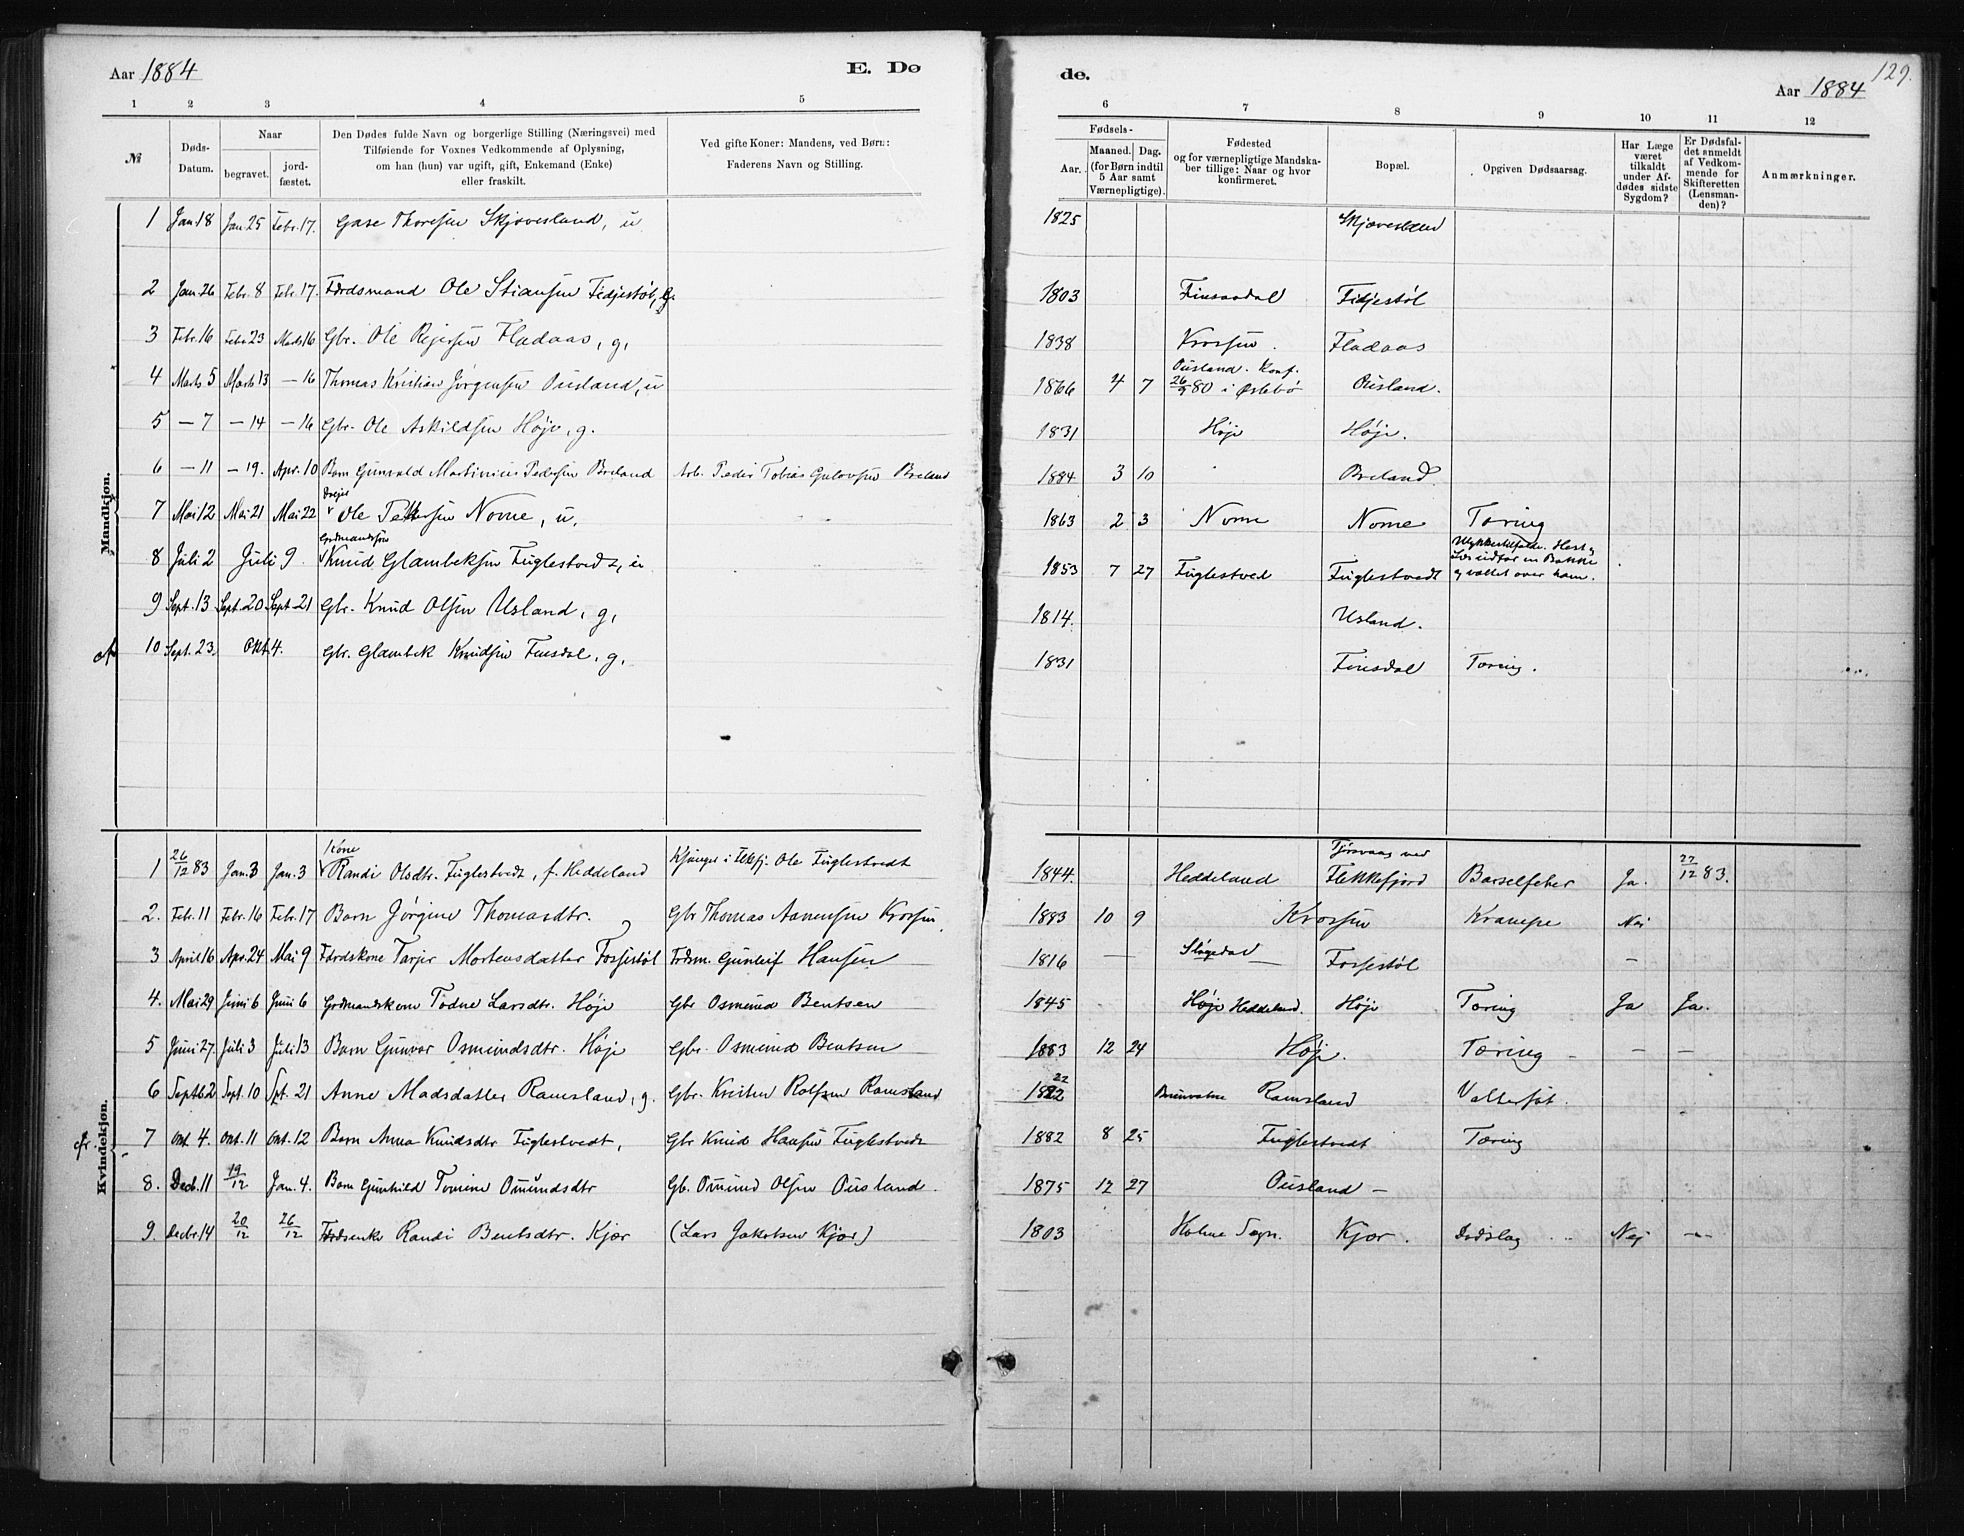 Aar 1884
E. Dø
de.
129.
Aar 1884
1 2 3 4 5 6 7 8 9 10 11 12
№
Døds-Datum.
Naar
begravet. jord-fæstet.
Den Dødes fulde Navn og borgerlige Stilling (Næringsvei) med
Tilføiende for Voxnes Vedkommende af Oplysning,
om han (hun) var ugift, gift, Enkemand (Enke)
eller fraskilt.
Ved gifte Koner: Mandens, ved Børn:
Faderens Navn og Stilling.
Fødsels-
Aar. Maaned. Dag.
(for Børn indtil
5 Aar samt
Værnepligtige).
Fødested
og for værnepligtige Mandska-
ber tillige: Naar og hvor
konfirmeret.
Bopæl.
Opgiven Dødsaarsag.
Har Læge
været
tilkaldt
under Af-
dødes sidste
Sygdom?
Er Dødsfal-
det anmeldt
af Vedkom-
mende for
Skifteretten
(Lensman-
den)?
Anmærkninger.
Mandkjøn.
1 Jan. 18 Jan. 25 Febr. 17. Thoresen Skjævesland, u. 1825 Skjævesland
2 Jan. 26 Febr. 8 Febr. 17. Fdrdsmand Ole Stiansen Fidjestøl, 1803 Finsaadal Fidjestøl
3 Febr. 16 Febr. 23 Marts 16 Gbr. Ole Rejersen Fladaas, g, 1838 Krossen. Fladaas
4 Marts 5 Marts 13 — 16 Thomas Kristian Jørgensen Ousland, u 1866 4 7 Ousland. Konf. 26/9 80 i Øslebø Ousland.
5 — 7 — 14 — 16 Gbr. Ole Askildsen Høje, g. 1831 Høje Høje.
6 — 11 — 19. Apr. 10 Barn Gunvald Martinius Pedersen Breland Arb. Peder Tobias Gulovsen Breland 1884 3 10 Breland.
7 Mai 12 Mai 21 Mai 22 Drejer Ole Pettersen Nome, u. 1863 2 3 Nome Nome Tæring
8 Juli 2 Juli 9 Grdmandssøn Knud Glambeksen Fuglestvedt, u 1853 7 27 Fuglestved Fuglestvedt Ulykkestilfælde. Hest og Læs udfor en Bakke og væltet over ham.
9 Sept. 13 Sept. 20 Sept. 21 Gbr. Knud Olsen Usland, g, 1814. Usland.
10 Sept. 23. Okt. 4. Gbr. Glambek Knudsen Finsdal, g, 1831 Finsdal Tæring.
Kvindekjøn.
1 26/12 83 Jan. 3 Jan. 3 Kone Randi Olsdtr. Fuglestvedt, f. Heddeland Ole Fuglestvedt 1844. Heddeland Tjørsvaag ved Flekkefjord Barselfeber Ja. 27/12 83.
2. Febr. 11 Febr. 16 Febr. 17 Barn Jørgine Thomasdtr. Gbr Thomas Aanensen Krossen. 1883 10 9 Krossen Krampe Nej
3 April 16 Apr. 24 Mai 9 Fdrdskone Tarjer Mortensdatter Fossestøl Fdrdsm. Gunleif Hansen 1816 — Fossestøl —
4. Mai 29 Juni 6 Juni 6 Grdmandskone Todne Larsdtr. Høje Gbr Osmund Bentsen 1845 Høje Heddeland. Høje Tæring Ja Ja.
5 Juni 27. Juli 3 Juli 13 Barn Gunvor Osmundsdtr. Høje Gbr. Osmund Bentsen 1883 12 24 Høje. Tæring — — —
6 Septb. 2 Sept. 10 Spt. 21 Anne Madsdatter Ramsland, g. Gbr. Kristen Rolfsen Ramsland 1822 22 Ramsland Vattersot.
cfr. 7 Okt. 4. Okt. 11 Okt. 12 Barn Anna Knudsdtr Fuglestvedt, Gbr Knud Hansen Fuglestvedt 1882 8 25 Fuglestvedt Tæring
8. Decb. 11 19/12 Jan. 4. Barn Gunhild Tomine Omundsdtr Gb. Omund Olsen Ousland. 1875 12 27 Ousland —
9. Decbr. 14 20/12 26/12 Fdrdsenke Randi Bentsdtr. Kjær (Lars Jakobsen Kjær) 1803 Holme Sogn. Kjær. Dødslag Nej —